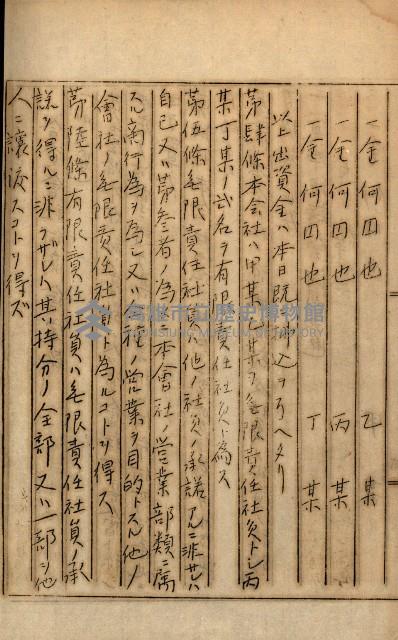 一金何四也 乙某
一金何四也 丙某
一金何四也 丁某
以上出資金ハ本日既ニ拂込ヲ了ヘタリ
第肆條本会社ハ甲某乙某ヲ無限責任社員トシ丙
某丁某ノ弍名ヲ有限責任社員ト為ス
第伍條無限責任社員ハ他ノ社員ノ承諾アルニ非サレハ
自己又ハ第参者ノ為メ本會社ノ営業部類ニ属
スル商行為ヲ為シ又ハ同種ノ営業ヲ目的トスル他ノ
會社ノ無限責任社員ト為ルコトヲ得ス
第陸條有限責任社員ハ無限責任社員ノ承
諾ヲ得ルニ非ラザレハ其ノ持分ノ全部又ハ一部ヲ他
人ニ讓渡スコトヲ得ズ
高雄市立歷史博物館
KAOHSIUNG MUSEUM OF HISTORY